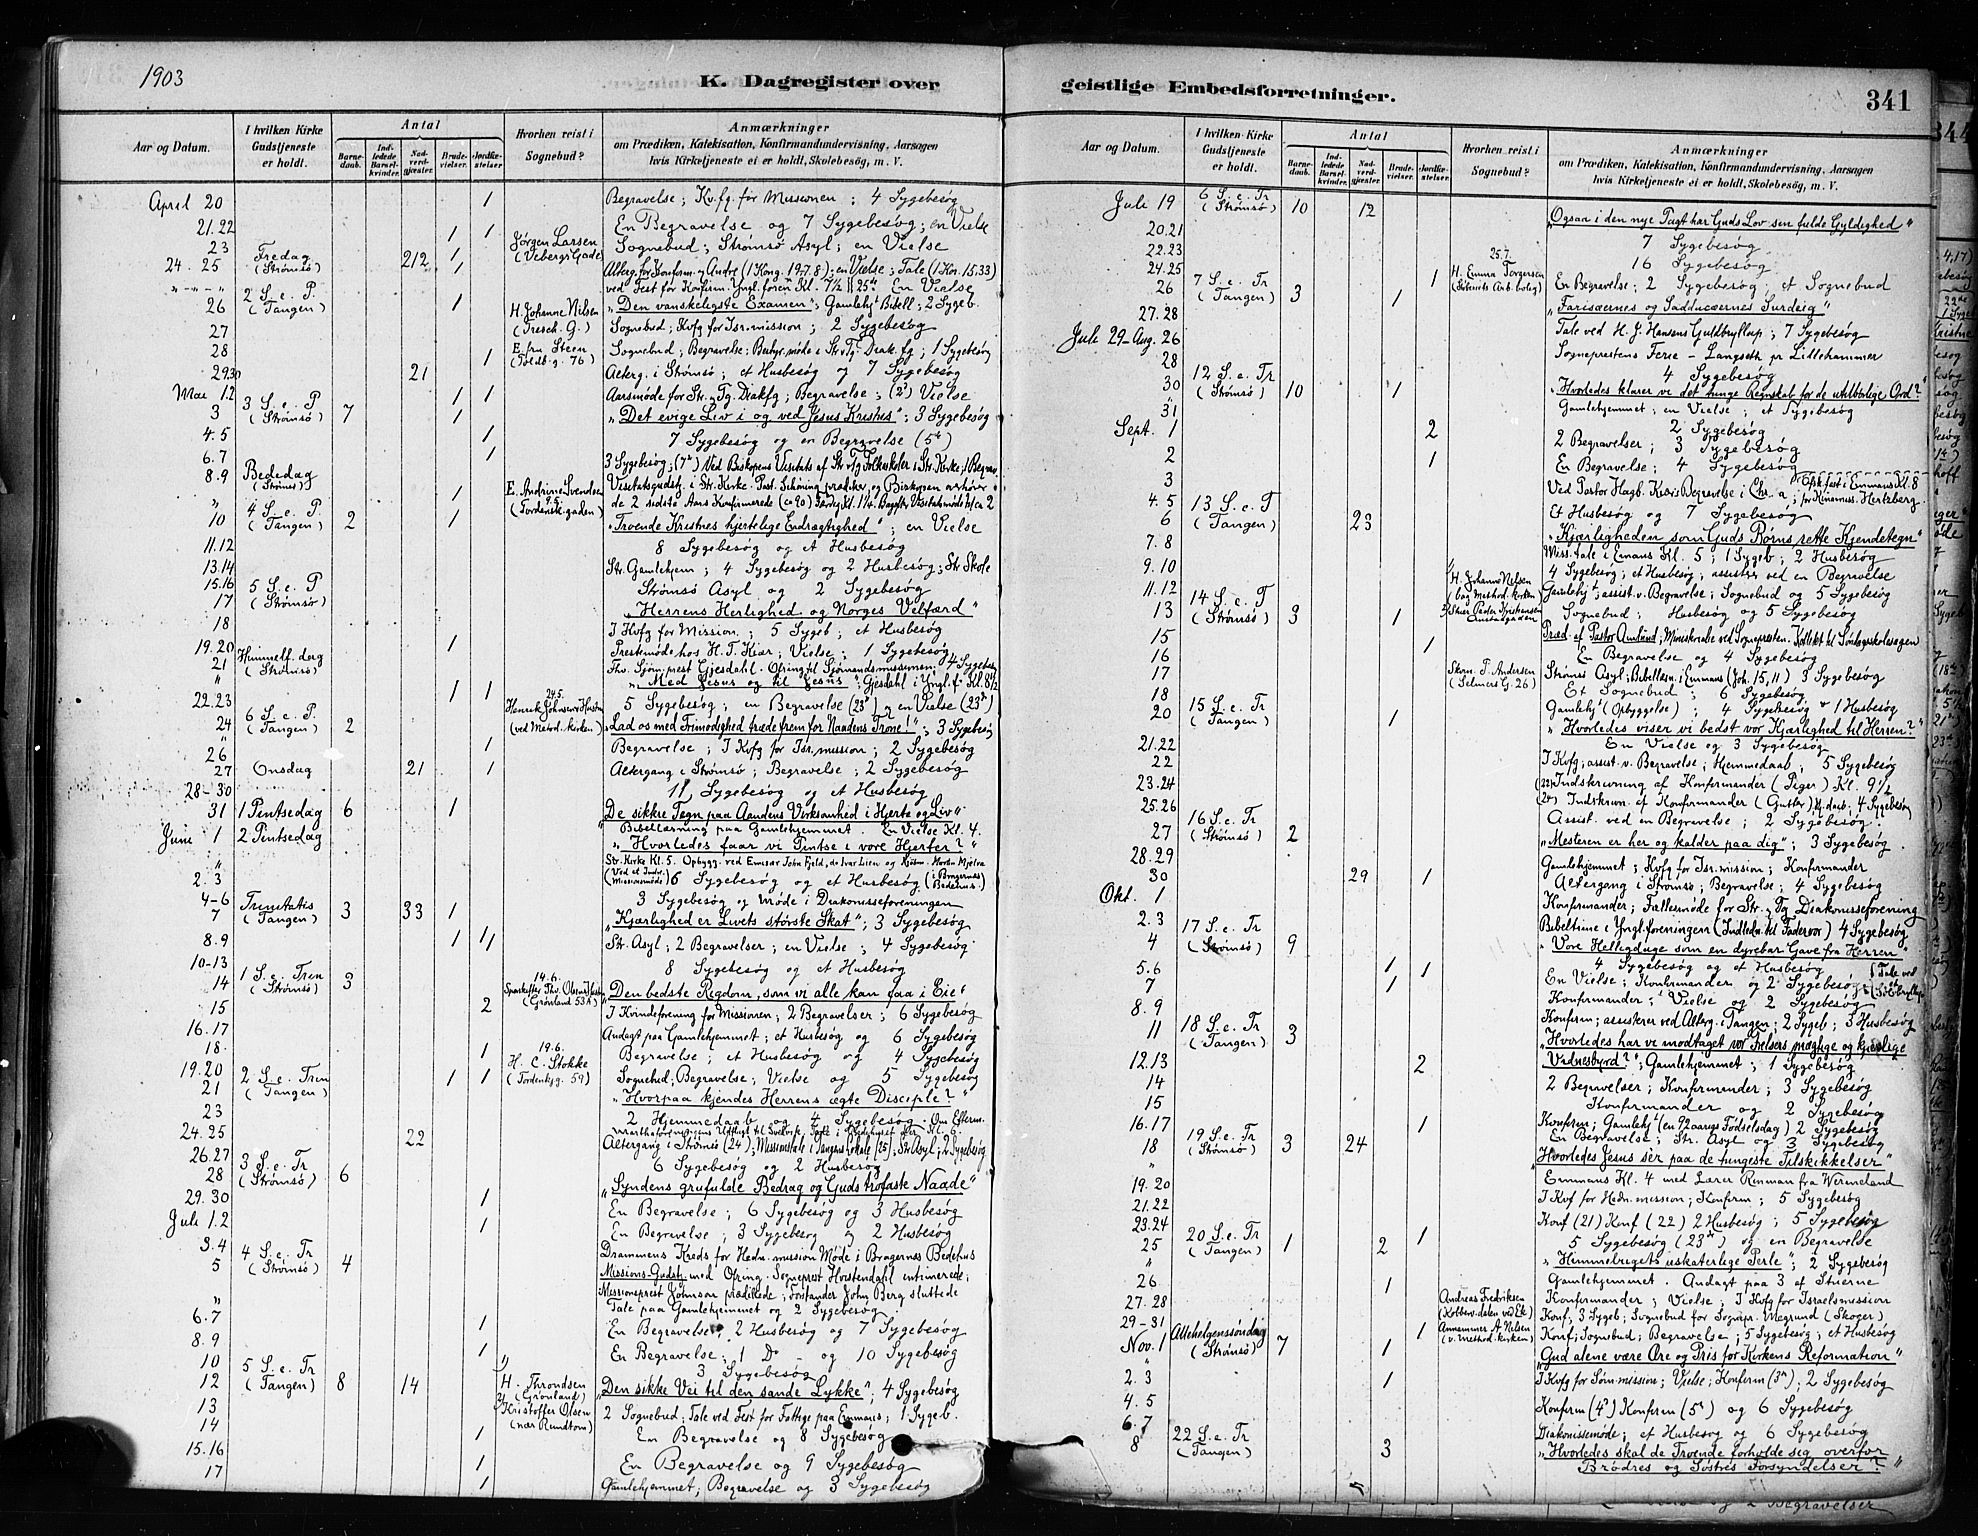 1903
K. Dagregister over
Aar og Datum.
I hvilken Kirke Gudstjeneste er holdt.
Antal
Barne-daab.
Ind-ledede Barsel-kvinder.
Nad-verd-gjæster.
Brude-vielser.
Jordfæ-stelser
Hvorhen reist i Sognebud?
Anmærkninger
om Prædiken, Katekisation, Konfirmandundervisning, Aarsagen
hvis Kirketjeneste ei er holdt, Skolebesøg, m. V.
April 20 1 Begravelse; Kvfg. for Missionen; 4 Sygebesøg
21.22 1 1 En Begravelse og 7 Sygebesøg; en Vielse
23 Fredag 1 Jørgen Larsen Sognebud; Strømsø Asyl; en Vielse
24. 25 (Strømsø) 212 1 Alterg. for Konfirm. og Andre (1 Kong. 19.7.8); en Vielse; Tale (1 Kor. 15.33)
2 S. e. P. ved Fest for Konfirm. En Vielse
26 (Tangen) 1 H. Johanne Nilsen „Den vanskeligste Examen“; Gamlehj. Bibell; 2 Sygeb.
27 (Tresch. G.) Sognebud; Kvfg for Isr. mission; 2 Sygebesøg
28 1 E. fru Steen Sognebud; Begravelse; 1 Sygebesøg
29.30 21 Alterg. i Strømsø; et Husbesøg og 7 Sygebesøg
Mai 1.2 3 S. e. P 1 1 Aarsmøde for Str. og Tg. Diakfg; Begravelse; (2') Vielse
3 (Strømsø) 7 1 „Det evige Liv i og ved Jesus Kristus“; 3 Sygebesøg
4.5 1 7 Sygebesøg og en Begravelse (5te)
6.7 1 3 Sygebesøg; (7de) Ved Biskopens Visitats af Str. og Tg Folkeskoler i Str. Kirke; 1 Begrav.
8.9 Bededag (Strømsø) 1 E. Andrine Svendsen Visitatsgudstj. i Str. Kirke. Past. Schøning prædiker og Biskopen
4 S. e. P. 9.5. de 2 sidste Aars Konfirmerede
10 (Tangen) 2 1 „Troende Kristnes hjertelige Endrægtighed“; en Vielse
11.12 8 Sygebesøg og et Husbesøg
13.14 Str. Gamlehjem; 4 Sygebesøg og 2 Husbesøg; Str Skole
15.16 5 S. e. P Strømsø Asyl og 2 Sygebesøg
17 (Strømsø) „Herrens Herlighed og Norges Velfærd“
18 I Kvfg for Mission; 5 Sygeb; et Husbesøg
19.20 1 Prestemøde hos H. T. Kiær; Vielse; 1 Sygebesøg
21 Himmelf. dag (Strømsø) Thv. Sjøm. prest Gjesdahl. Ofring til Sjømandsmissionen; 4 Sygebesøg
„ „Med Jesus og til Jesus“; Gjesdahl i Yngl. f. Kl. 8½
22.23 1 1 24.5. 5 Sygebesøg; en Begravelse (23') og en Vielse (23de)
24 6 S. e. P. (Tangen) 2 (ved Metod. kirken) „Lad os med Frimodighed træde frem for Naadens Trone!“; 3 Sygebesøg
26 1 Begravelse; I Kvfg for Isr. mission; 2 Sygebesøg
27 Onsdag 21 1 Altergang i Strømsø; Begravelse; 2 Sygebesøg
28-30 11 Sygebesøg og et Husbesøg
31 1 Pintsedag 6 1 De sikke Tegn paa Aandens Virksomhed i Hjerte og Liv“
Juni 1 2 Pintsedag Bibellæsning paa Gamlehjemmet. En Vielse Kl. 4.
„Hvorledes faar vi Pintse i vore Hjerter?“
„ Str. Kirke Kl. 5. Opbygg. ved Emisær John Fjeld, do Ivar Lien
2. 3 6 Sygebesøg og et Husbesøg (i Bragernes Bedehus.)
4-6 3 Sygebesøg og Møde i Diakonisseforeningen
7 Trinitatis (Tangen) 3 33 1 „Kjærlighed er Livets største Skat“; 3 Sygebesøg
8.9 1 1/1 Str. Asyl; 2 Begravelser; en Vielse; 4 Sygebesøg
10-13 8 Sygebesøg og et Husbesøg
14 1 S. e. Tren (Strømsø) 3 14.6. (Grønland 53A) „Den bedste Rigdom, som vi alle kan faa i Eie“
15 2 I Kvindeforening for Missionen; 2 Begravelser; 6 Sygebesøg
16.17 Andagt paa Gamlehjemmet; et Husbesøg og 6 Sygebesøg
18. 1 19.6. Begravelse; et Husbesøg og 4 Sygebesøg
19.20 1 1 H. C. Stokke (Tordenskj. 59) Sognebud, Begravelse; Vielse og 5 Sygebesøg
21 2 S. e. Tren (Tangen) „Hvorpaa kjendes Herrens ægte Disciple?“
23 2 Hjemmedaab og 4 Sygebesøg. Om Efterm.
24.25 22 Altergang i Strømsø (24'); Missionstale i Tangens Lokale (25'); Str Asyl; 2 Sygebesøg
26.27 6 Sygebesøg og 2 Husbesøg
28 3 S. e. Tr (Strømsø) 6 „Syndens grufulde Bedrag og Guds trofaste Naade“
29.30 1 En Begravelse; 6 Sygebesøg og 3 Husbesøg
Juli 1.2 1 En Begravelse; 3 Sygebesøg og 2 Husbesøg
3.4 Drammens Kreds for Hedn. mission Møde i Bragernes Bedehus
5 4 S. e. Tr (Strømsø) 4 Missions-Gudstj. med Ofring. Sogneprest Horstendahl intimerede;
„ Missionsprest Johnson prædikede; Forstander John Berg sluttede
Tale paa Gamlehjemmet og 2 Sygebesøg
6.7 1 En Begravelse; 2 Husbesøg og 7 Sygebesøg
8.9 1 En Begravelse; 1 Do og 10 Sygebesøg
10 3 Sygebesøg
12 5 S. e. Tr (Tangen) 8 14 H. Throndsen (Grønland) „Den sikke Vei til den sande Lykke“; 4 Sygebesøg
13 Kristoffer Olsen (nær Rundtom) 2 Sognebud; Tale ved Fest for Fattige paa Emmaus; 1 Sygeb.
14 1 En Begravelse og 8 Sygebesøg
15.16 1 En Begravelse og 9 Sygebesøg
17 1 Gamlehjemmet; Begravelse og 3 Sygebesøg
geistlige Embedsforretninger.
341
Aar og Datum.
I hvilken Kirke Gudstjeneste er holdt.
Antal
Barne-daab.
Ind-ledede Barsel-kvinder.
Nad-verd-gjæster.
Brude-vielser.
Jordfæ-stelser.
Hvorhen reist i Sognebud?
Anmærkninger
om Prædiken, Katekisation, Konfirmandundervisning, Aarsagen
hvis Kirketjeneste ei er holdt, Skolebesøg, m. V.
Juli 19 6 S. e. Tr (Strømsø) 10 12 „Ogsaa i den nye Pagt har Guds Lov sin fulde Gyldighed“
20.21 7 Sygebesøg
22.23 25.7. 16 Sygebesøg
24.25 1 H. Emma Torgersen En Begravelse; 2 Sygebesøg; et Sognebud
26 7 S. e. Tr (Tangen) 3 1 „Farisæernes og Sadducæernes Surdeig“
27.28 Tale ved H. J. Hansens Guldbryllup; 7 Sygebesøg
Juli 29-Aug. 26 Sogneprestens Ferie - Langseth pr Lillehammer
28 4 Sygebesøg
30 12 S. e. Tr (Strømsø) 10 1 „Hvorledes klarer vi det tunge Regnskab for de utilbørlige Ord?“
„ Gamlehjemmet; en Vielse; et Sygebesøg
31 2 Sygebesøg
Sept. 1 2 2 Begravelser; 3 Sygebesøg
2 1 En Begravelse; 4 Sygebesøg
3 Ved Pastor Hagb. Kiærs Begravelse i Chr.a; for Kinamiss. Hertzberg.
4.5 13 S. e. T Et Husbesøg og 7 Sygebesøg
6 (Tangen) 23 „Kjærligheden som Guds Børns rette Kjendetegn“
7.8 Miss. tale i Emaus Kl. 5; 1 Sygeb; 2 Husbesøg
9.10 H. Johanne Nielsen 4 Sygebesøg; et Husbesøg, assistrer ved en Begravelse
11.12 14 S. e. T (bag Methodi. kirken) Gamlehj; assist. v. Begravelse; Sognebud og 5 Sygebesøg
13 (Strømsø) 3 1 Sognebud; Husbesøg og 5 Sygebesøg
15 1 Præd. af Pastor Amlund; Ministrerede ved Sognepresten. Kollekt til Søndagsskolesagen
16 En Begravelse og 4 Sygebesøg
17 T. Andersen (Selmers G. 26) Strømsø Asyl; Bibellæsn. i Emmaus (Joh. 15,11) 3 Sygebesøg
18 Et Sognebud; 6 Sygebesøg
20 15 S. e. Tr (Tangen) 1 Gamlehj (Opbyggelse); 4 Sygebesøg + 1 Husbesøg
„Hvorledes viser vi bedst vor Kjærlighed til Herren?“
21.22 En Vielse og 3 Sygebesøg
22 I Kvfg; assist. v. Begravelse; Hjemmedaab; 5 Sygebesøg
23.24 (22') Indskrivning af Konfirmander (Piger) Kl. 9½
25.26 Indskrivn. af Konfirmander (Gutter) Hj. daab; 4 Sygebesøg
16 S. e. Tr Assist. ved en Begravelse; 2 Sygebesøg.
27 (Strømsø) 2 „Mesteren er her og kalder paa dig“; 3 Sygebesøg
28.29 Gamlehjemmet; Kvfg for Isr. mission; Konfirmander
30 29 1 Altergang i Strømsø; Begravelse; 4 Sygebesøg
Okt. 1 Konfirmander; Fællesmøde for Str. og Tg Diakonisseforening
2.3 17 S. e. Tr Bibeltime i Yngl. foreningen (Indledn. til Fadervor) 4 Sygebesøg
4 (Strømsø) 9 „Vore Helligdage som en dyrebar Gave fra Herren“
5.6 1 1 4 Sygebesøg og et Husbesøg
7 1 En Vielse; Konfirmander og 2 Sygebesøg
8.9 Konfirmander; Vielse og 2 Sygebesøg
11 18 S. e. Tr (Tangen) 3 Konfirm; assisterer ved Alterg. i Tangen; 2 Sygeb; 3 Husbesøg
„Hvorledes har vi modtaget vor Frelsers mægtige og kjærlige
12.13 2 Vidnesbyrd?“; Gamlehjemmet; 1 Sygebesøg
14 2 Begravelser; Konfirmander; 3 Sygebesøg
15 Konfirmander og 2 Sygebesøg
16.17 1 Konfirm; Gamlehj (en 92aarigs Fødselsdag) 2 Sygebesøg
En Begravelse; Str. Asyl og 3 Sygebesøg
18 19 S. e. Tr (Strømsø) 3 24 „Hvorledes Jesus sér paa de tungeste Tilskikkelser“
„ Emmaus Kl. 4 med Lærer Rinman fra Wermeland
19.20 I Kvf for Hedn. mission; Konfirm; 5 Sygebesøg
21.22 Konf (21) Konf (22) 2 Husbesøg; 5 Sygebesøg
23.24 1 5 Sygebesøg (23de) og en Begravelse
25 20 S. e. Tr (Tangen) 1 2 „Himmerigets uskaterlige Perle“; 2 Sygebesøg
„ Gamlehjemmet. Andagt paa 3 af Stuerne
26 1 Konfirmander; Vielse; I Kvfg for Israelsmission
27.28 Andreas Fredriksen Konf; 3 Sygeb; Sognebud for Sognepr. Wegrund (Skoger)
29-31 1 Annammer A. Nilsen (v. Methodi. kirken) Konf; Sognebud; Begravelse; 5 Sygebesøg; et Husbesøg
Nov. 1 Allehelgenssøndag (Strømsø) 7 1 „Gud alene være Ære og Pris for Kirkens Reformation“
„
2.3 1 I Kvfg for Søm. mission; Vielse; Konfirm (3de); 2 Sygebesøg
4.5 Konfirm (4de) Konfirm (5te) og 6 Sygebesøg
6.7 Diakonissemøde; et Husbesøg og 6 Sygebesøg
8 22 S. e. Tr (Tangen) 3 „Hvorledes skal de Troende forholde sig overfor
Brødres og Søstres Forsyndelser?“
344